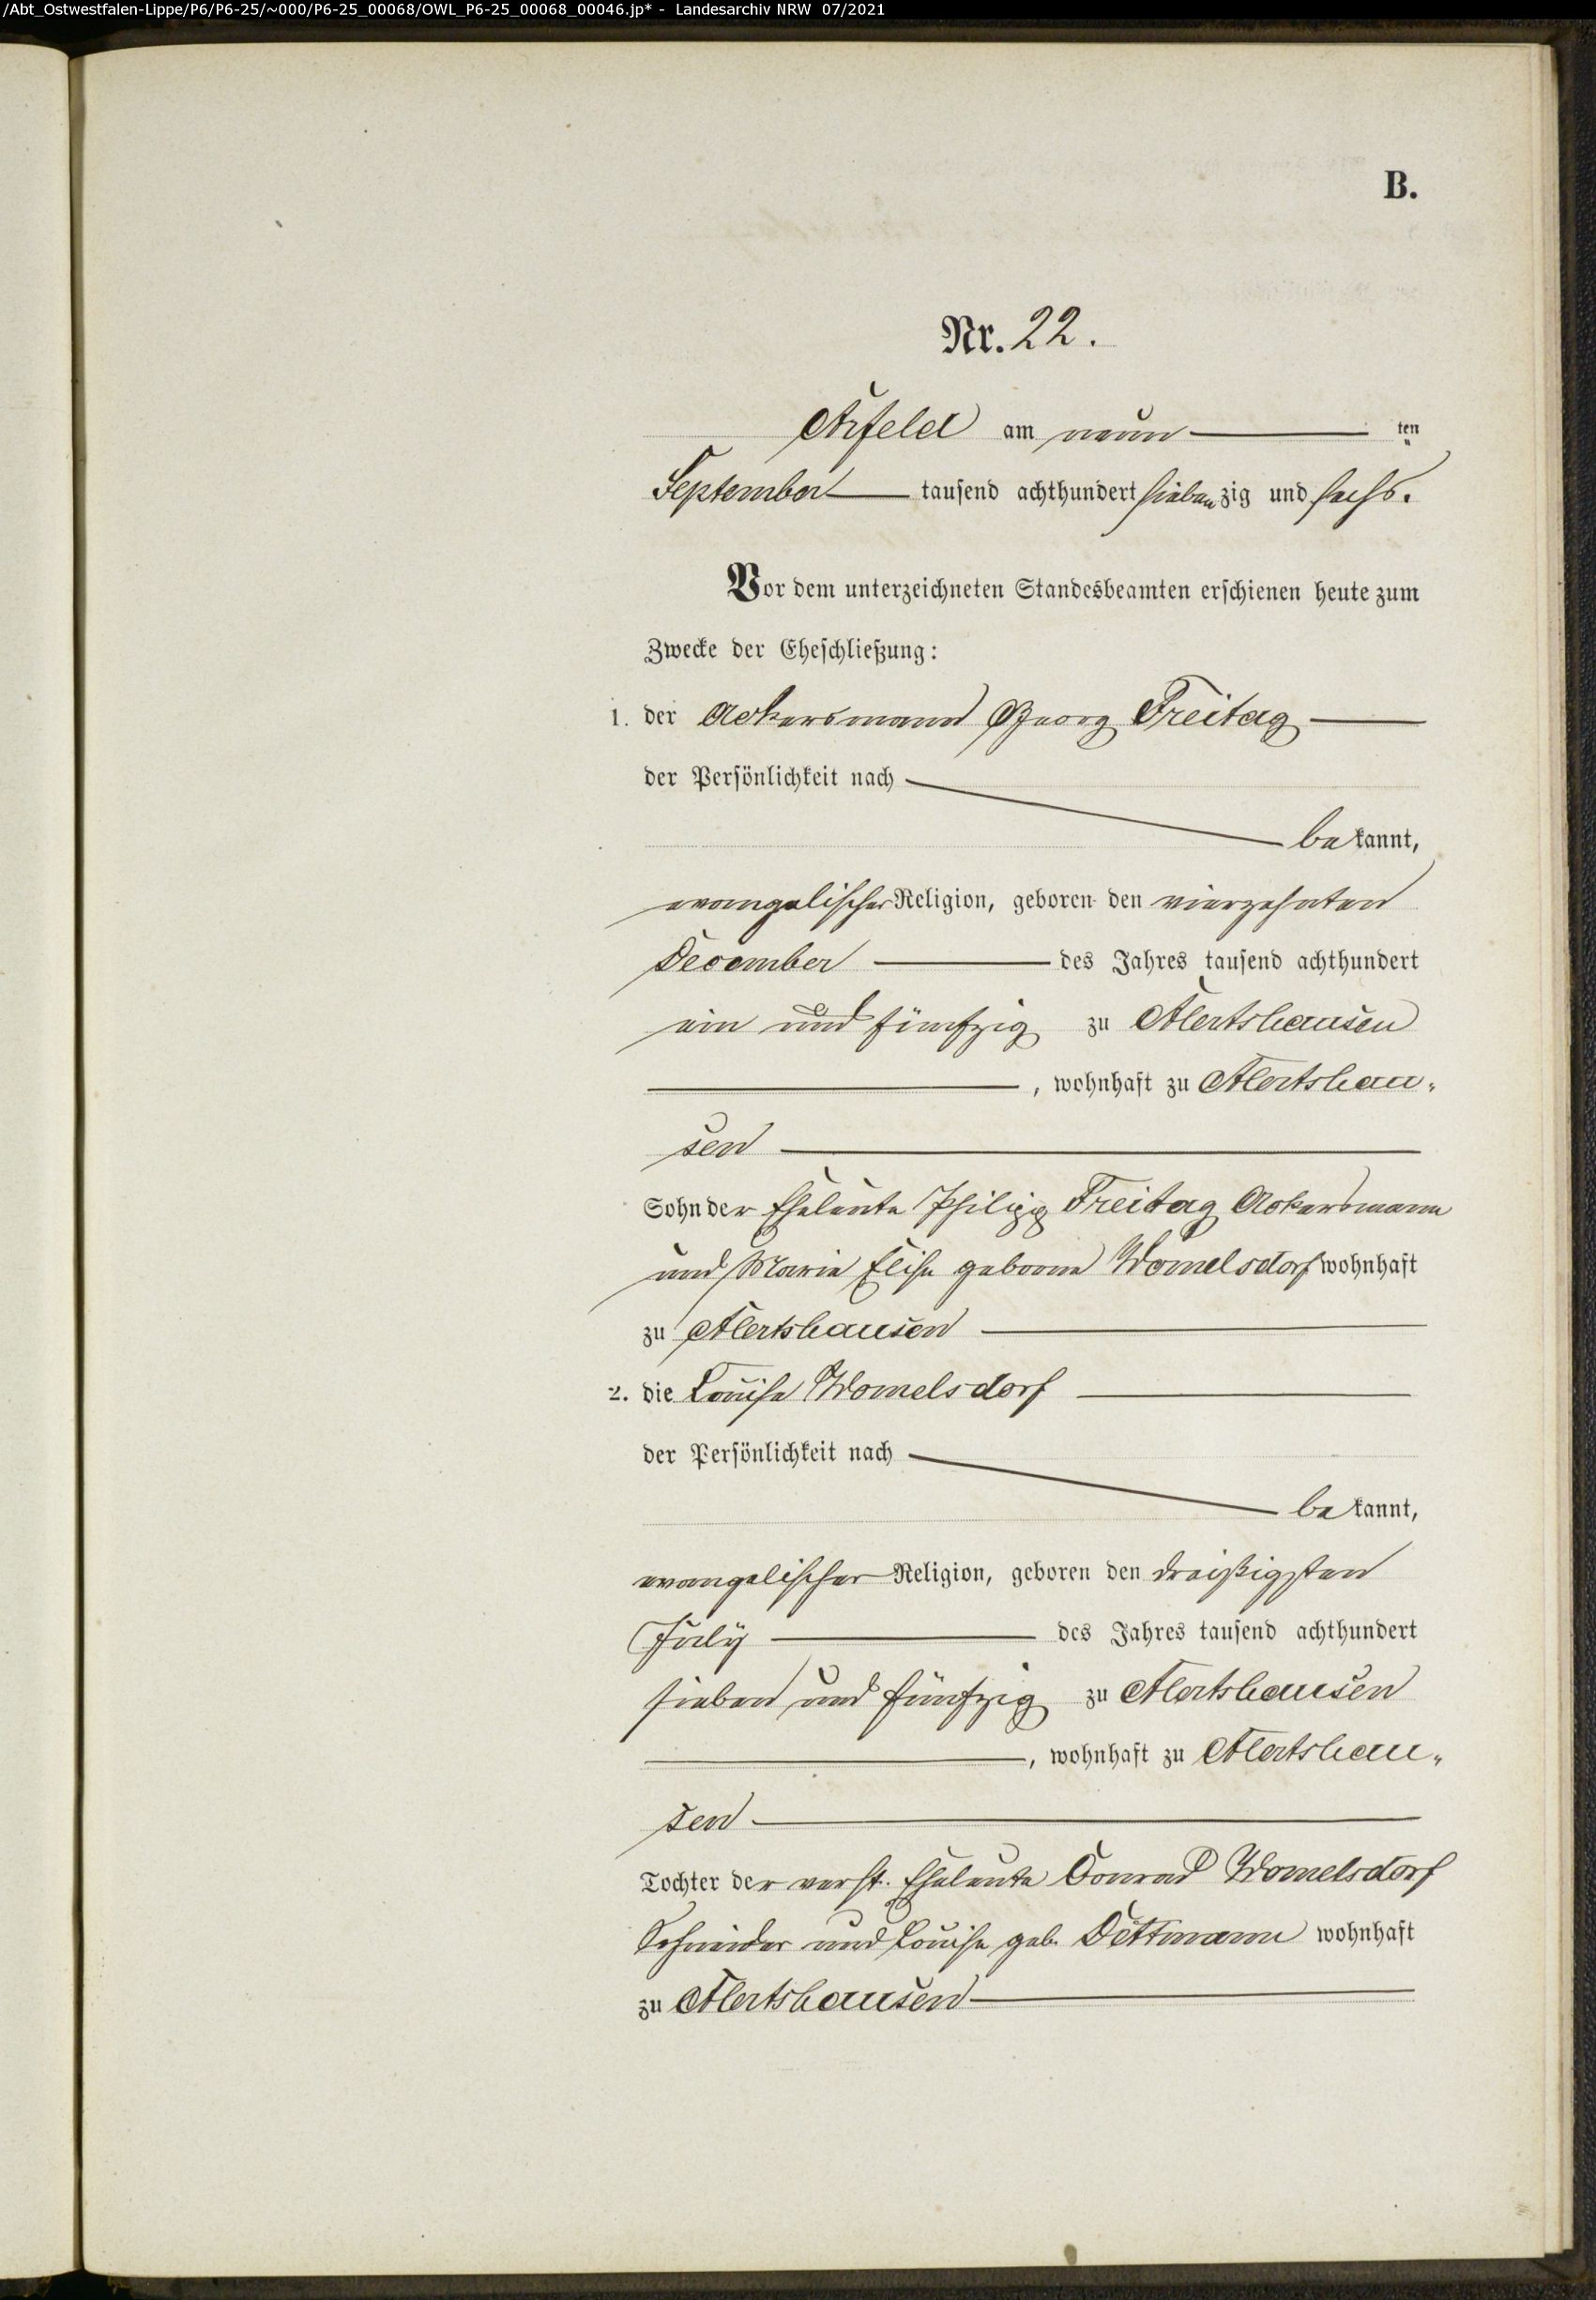 /Abt_Ostwestfalen-Lippe/P6/P6-25/~000/P6-25_00068/OWL_P6-25_00068_00046.jp* - Landesarchiv NRW 07/2021
B.
Nr. 22.
Arfeld am neun ten
September tausend achthundert siebenzig und sechs.
Vor dem unterzeichneten Standesbeamten erschienen heute zum
Zwecke der Eheschließung:
1. der Ackersmann Georg Freitag
der Persönlichkeit nach
bekannt,
evangelischer Religion, geboren den vierzehnten
December des Jahres tausend achthundert
ein und fünfzig zu Alertshausen
, wohnhaft zu Alertshau-
sen
Sohn der Eheleute Philipp Freitag Ackersmann
und Marie Elise geborne Womelsdorf wohnhaft
zu Alertshausen
2. die Louise Womelsdorf
der Persönlichkeit nach
bekannt,
evangelischer Religion, geboren den dreißigsten
July des Jahres tausend achthundert
sieben und fünfzig zu Alertshausen
, wohnhaft zu Alertshau-
sen
Tochter der verst. Eheleute Conrad Womelsdorf
Schneider und Louise geb. Dettmann wohnhaft
zu Alertshausen